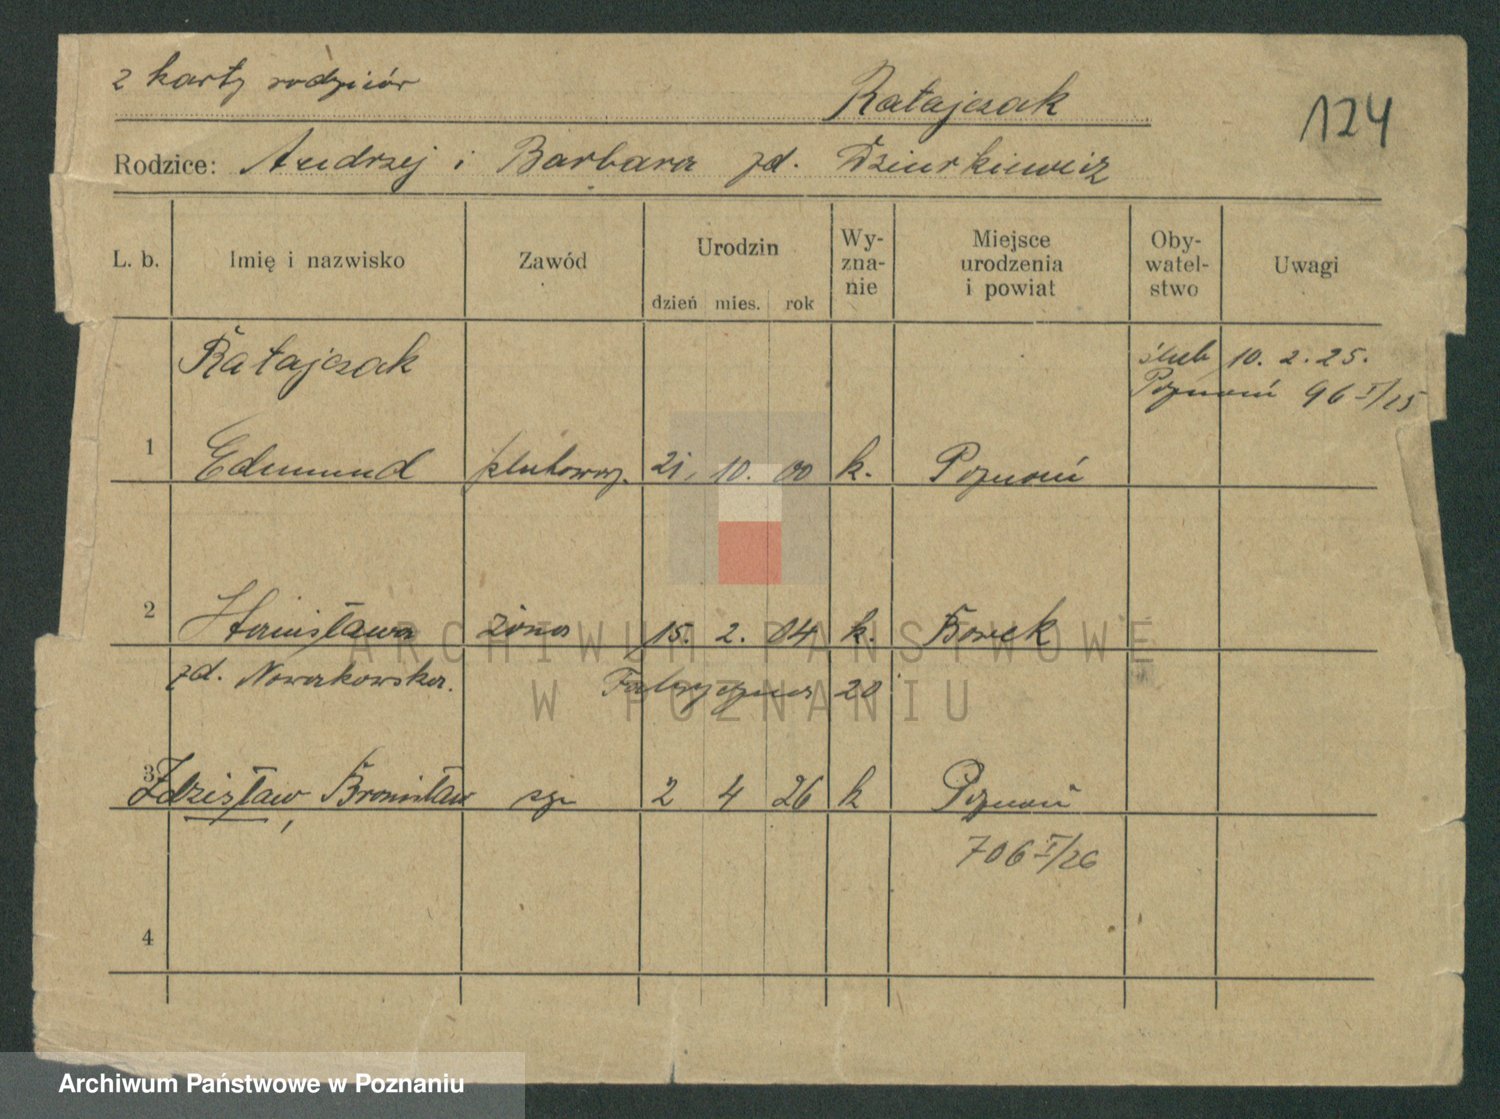 z karty rodziców
Ratajczak
124
Rodzice: Andrzej i Barbara zd. Dziurkiewicz
L. b. Imię i nazwisko Zawód Urodzin Wy-zna-nie Miejsce urodzenia i powiat Oby-watel-stwo Uwagi
dzień mies. rok
Ratajczak ślub 10. 2. 25.
Poznań 96 I/25
1 Edmund 21. 10. 00 k. Poznań
2 Stanisława żona 15. 2. 04 k. Borek
zd. Nowakowska. Fabryczna 20
3 Zdzisław, Bronisław syn 2 4 26 k Poznań
706 I/26
4
ARCHIWUM PAŃSTWOWE
W POZNANIU
Archiwum Państwowe w Poznaniu